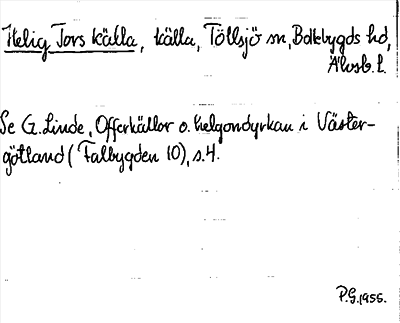 Helig Tors källa, källa, Töllsjö sn, Bollebygds hd,
Älvsb. l.
Se G. Linde, Offerkällor o. helgondyrkan i Väster-
götland (Falbygden 10), s. 4.
P.G. 1955.